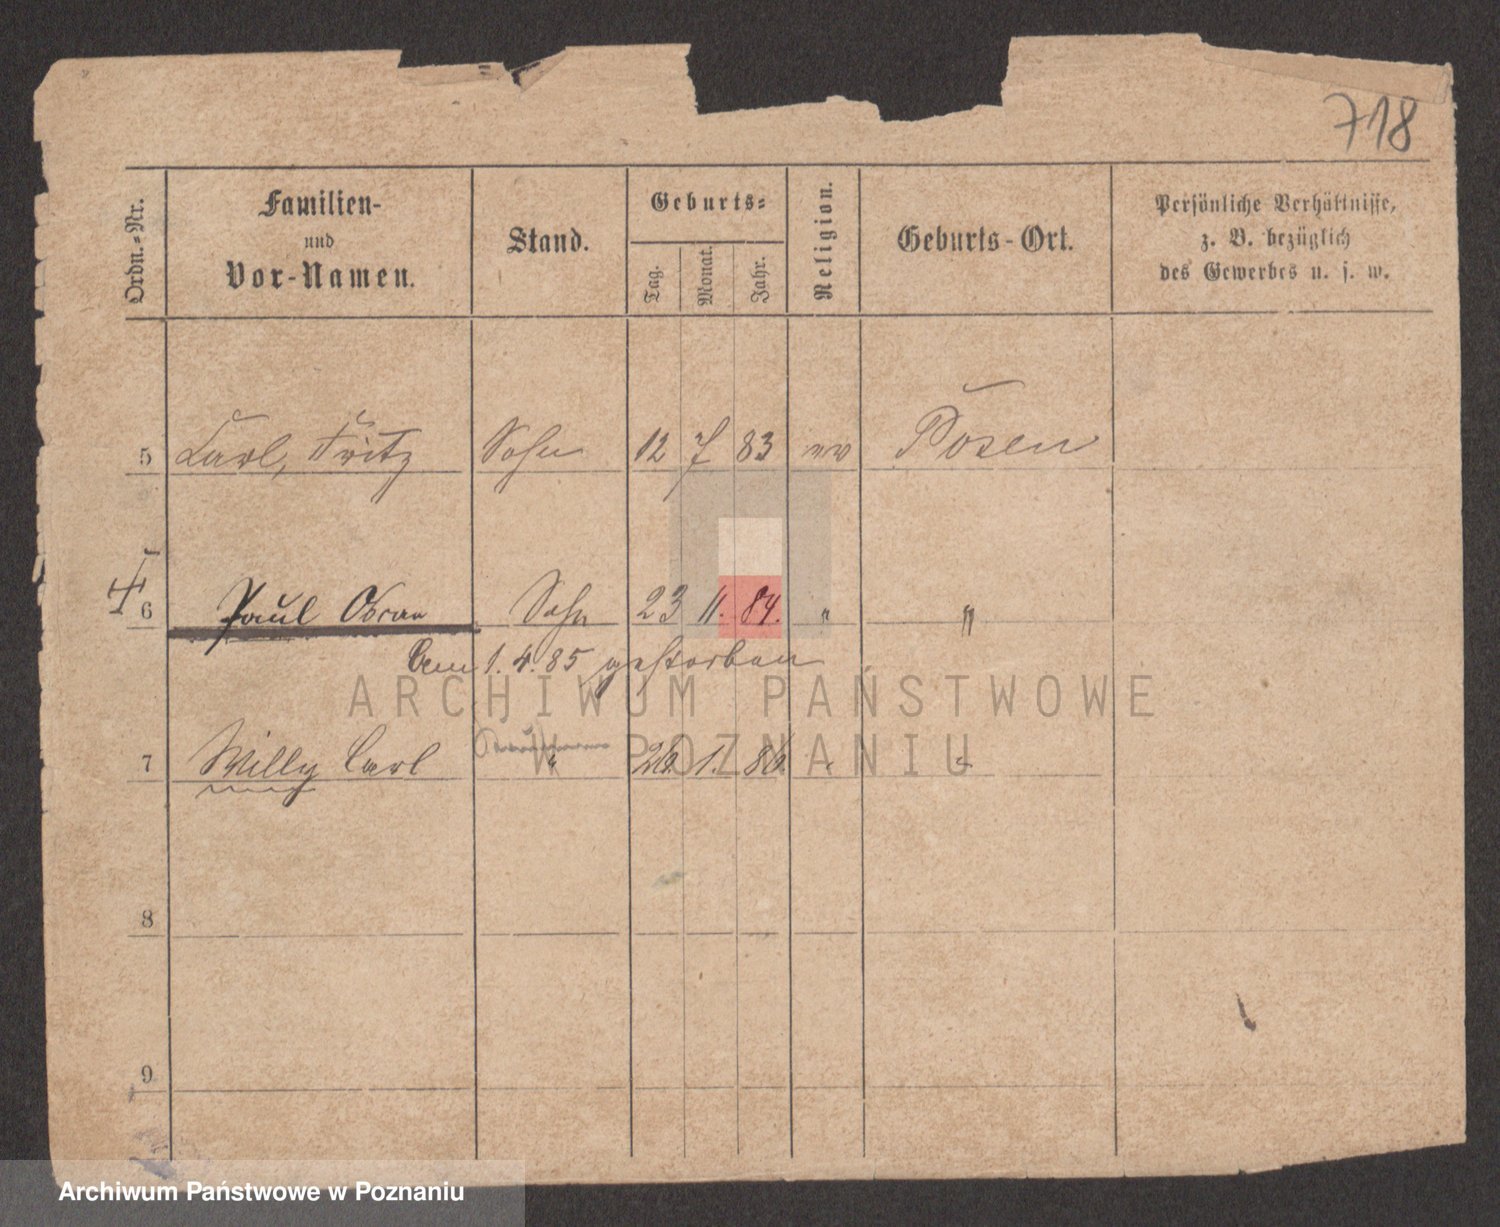 718
Ordn.-Nr. Familien- und Vor-Namen. Stand. Geburts- Tag. Monat. Jahr. Religion. Geburts-Ort. Persönliche Verhältnisse, z. B. bezüglich des Gewerbes u. s. w.
5 Carl, Fritz Sohn 12 7 83 ev Posen
6 Paul Oscar Sohn 23 11. 84. " "
Am 1. 4. 85 gestorben
7 Willy Carl " 26. 1. 86. " "
8
9
ARCHIWUM PAŃSTWOWE
W POZNANIU
Archiwum Państwowe w Poznaniu